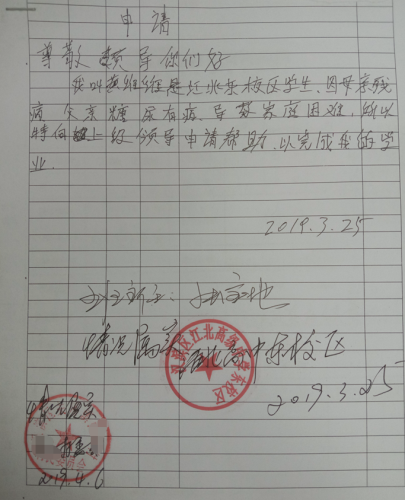 申请
尊敬领导你们好
我叫 维维是江北东校区学生.因母亲残
病 父亲糖尿有病.导致家庭困难,所以
特向 上级领导申请帮助.以完成我的学
业.
2019.3.25
班主任:
情况属实 江北高中东校区
江北高级中学东校区
2019.3.25
情况属实
2019.4.6